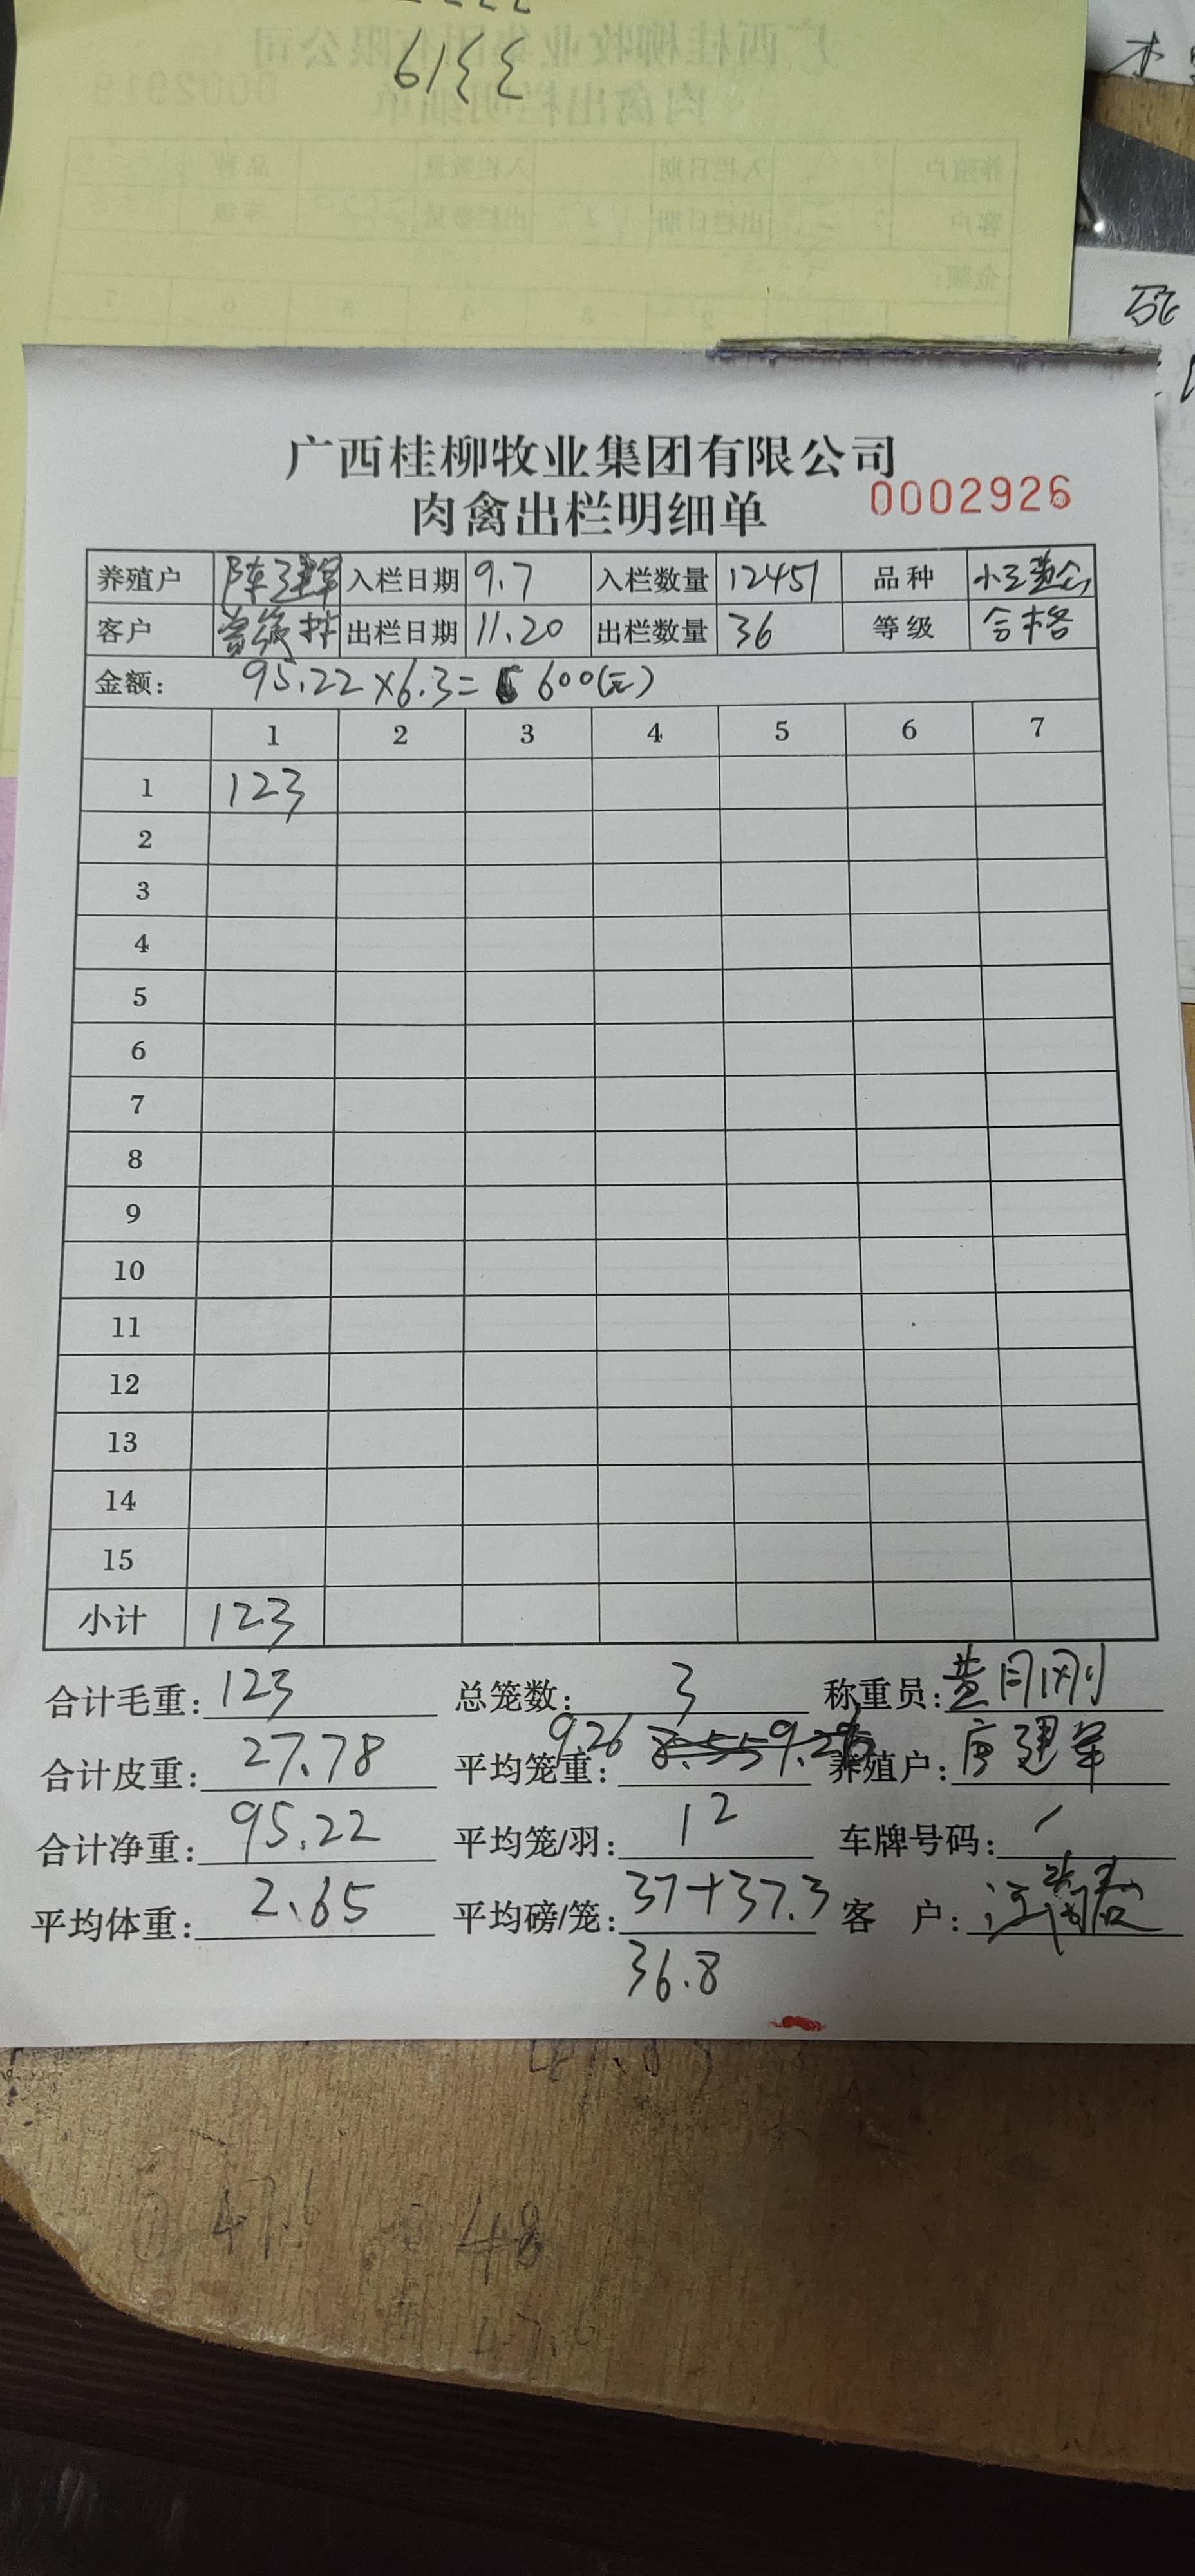 6133
广西桂柳牧业集团有限公司
肉禽出栏明细单
0002926
养殖户 陈建军 入栏日期 9.7 入栏数量 12451 品种
客户 出栏日期 11.20 出栏数量 36 等级 合格
金额: 95.22×6.3= 600(元)
1 2 3 4 5 6 7
1 123
2
3
4
5
6
7
8
9
10
11
12
13
14
15
小计 123
合计毛重: 123 总笼数: 3 称重员: 黄月刚
合计皮重: 27.78 平均笼重: 9.26 养殖户:
合计净重: 95.22 平均笼/羽: 12 车牌号码: /
平均体重: 2.65 平均磅/笼: 37+37.3 客 户:
36.8
47.
48